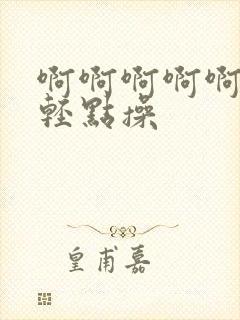 啊啊啊啊啊
輕點操
皇甫嘉